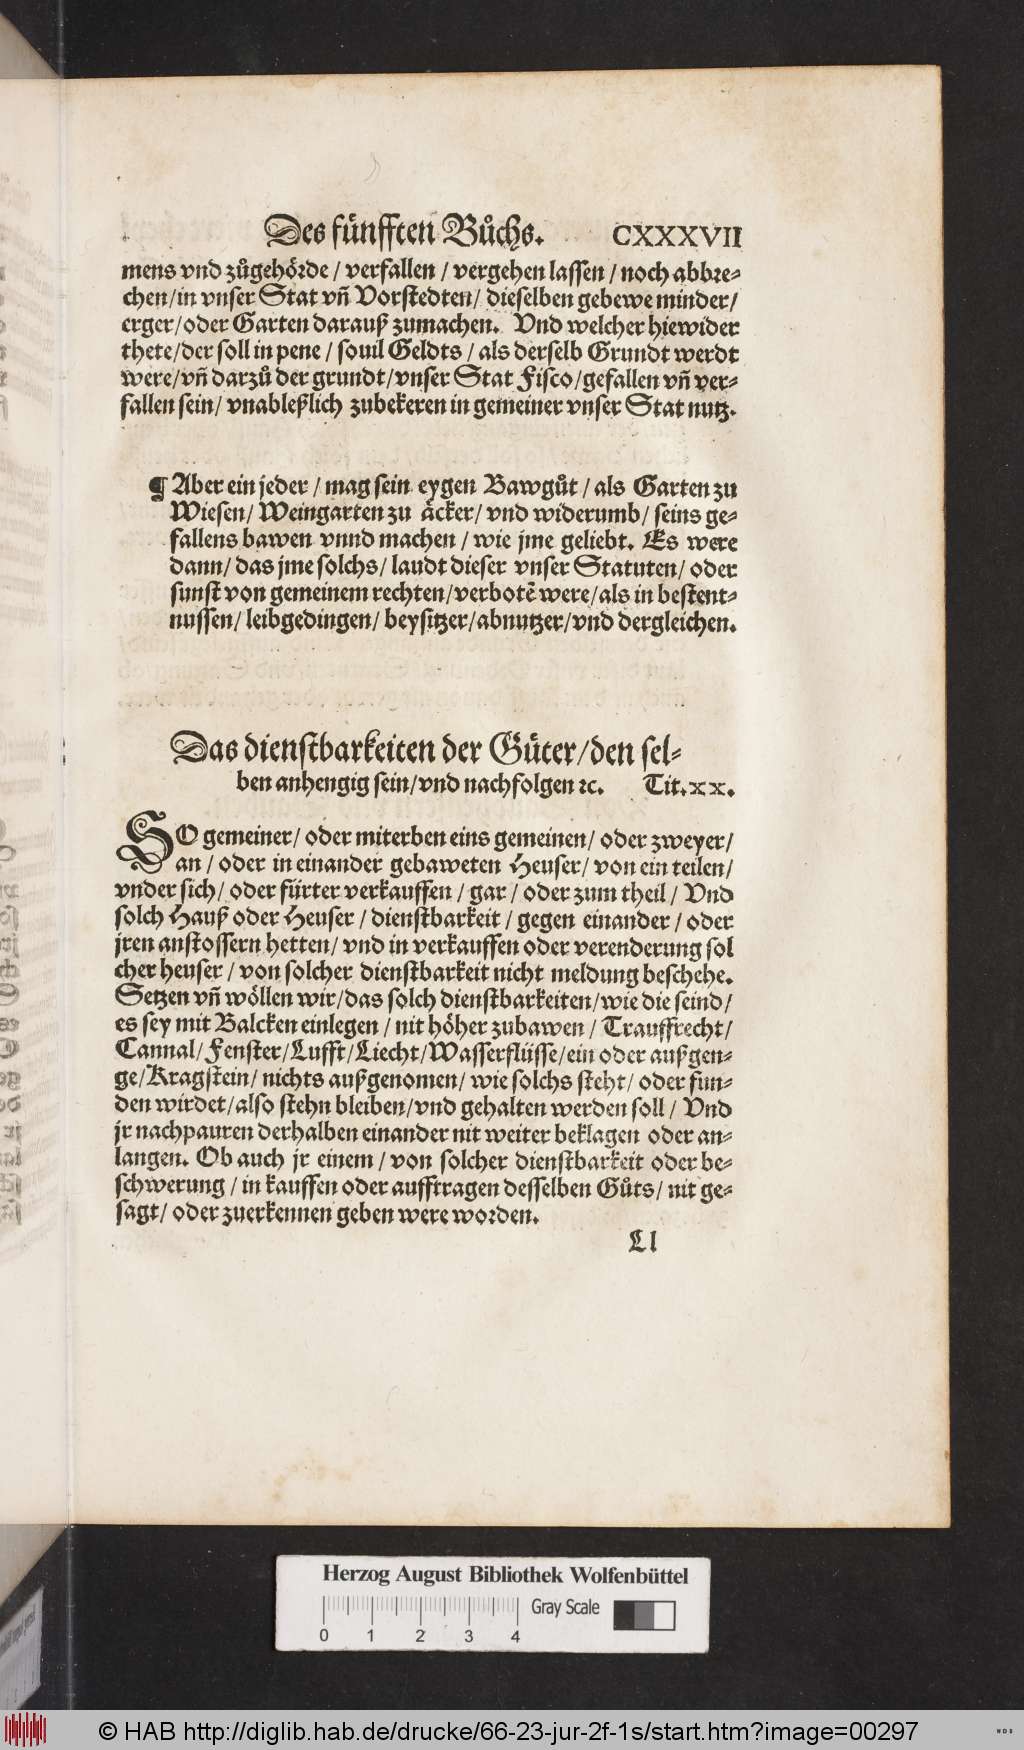 Des fünfften Bůchs. CXXXVII
mens vnd zůgehörde / verfallen / vergehen lassen / noch abbre⸗
chen / in vnser Stat vñ Vorstedten / dieselben gebewe minder /
erger / oder Garten darauß zumachen. Vnd welcher hiewider
thete / der soll in pene / souil Geldts / als derselb Grundt werdt
were / vñ darzů der grundt / vnser Stat Fisco / gefallen vñ ver⸗
fallen sein / vnableßlich zubekeren in gemeiner vnser Stat nutz.
¶ Aber ein jeder / mag sein eygen Bawgůt / als Garten zu
Wiesen / Weingarten zu äcker / vnd widerumb / seins ge⸗
fallens bawen vnnd machen / wie jme geliebt. Es were
dann / das jme solchs / laudt dieser vnser Statuten / oder
sunst von gemeinem rechten / verbotẽ were / als in bestent⸗
nussen / leibgedingen / beysitzer / abnutzer / vnd dergleichen.
Das dienstbarkeiten der Güter / den sel⸗
ben anhengig sein / vnd nachfolgen ꝛc. Tit. xx.
SO gemeiner / oder miterben eins gemeinen / oder zweyer /
an / oder in einander gebaweten Heuser / von ein teilen /
vnder sich / oder fürter verkauffen / gar / oder zum theil / Vnd
solch Hauß oder Heuser / dienstbarkeit / gegen einander / oder
jren anstossern hetten / vnd in verkauffen oder verenderung sol
cher heuser / von solcher dienstbarkeit nicht meldung beschehe.
Setzen vñ wöllen wir / das solch dienstbarkeiten / wie die seind /
es sey mit Balcken einlegen / nit höher zubawen / Trauffrecht /
Cannal / Fenster / Lufft / Liecht / Wasserflüsse / ein oder außgen⸗
ge / Kragstein / nichts außgenomen / wie solchs steht / oder fun⸗
den wirdet / also stehn bleiben / vnd gehalten werden soll / Vnd
jr nachpauren derhalben einander nit weiter beklagen oder an⸗
langen. Ob auch jr einem / von solcher dienstbarkeit oder be⸗
schwerung / in kauffen oder aufftragen desselben Gůts / nit ge⸗
sagt / oder zuerkennen geben were worden.
Ll
Herzog August Bibliothek Wolfenbüttel
Gray Scale
0 1 2 3 4
© HAB http://diglib.hab.de/drucke/66-23-jur-2f-1s/start.htm?image=00297